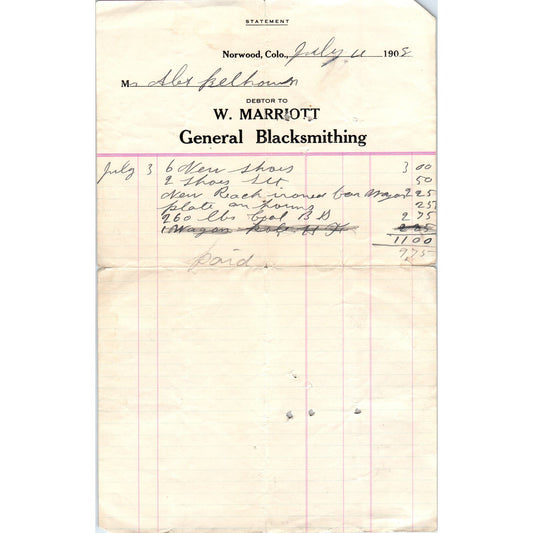 STATEMENT
Norwood, Colo., July 11 1908
Mr Alex
DEBTOR TO
W. MARRIOTT
General Blacksmithing
July 3 6 New Shoes 3 00
2 Shoes set 50
New Reach ironed for Wagon 2 25
plate on 25
260 lbs Coal 2 75
1 Wagon Pole
11 00
9 75
paid